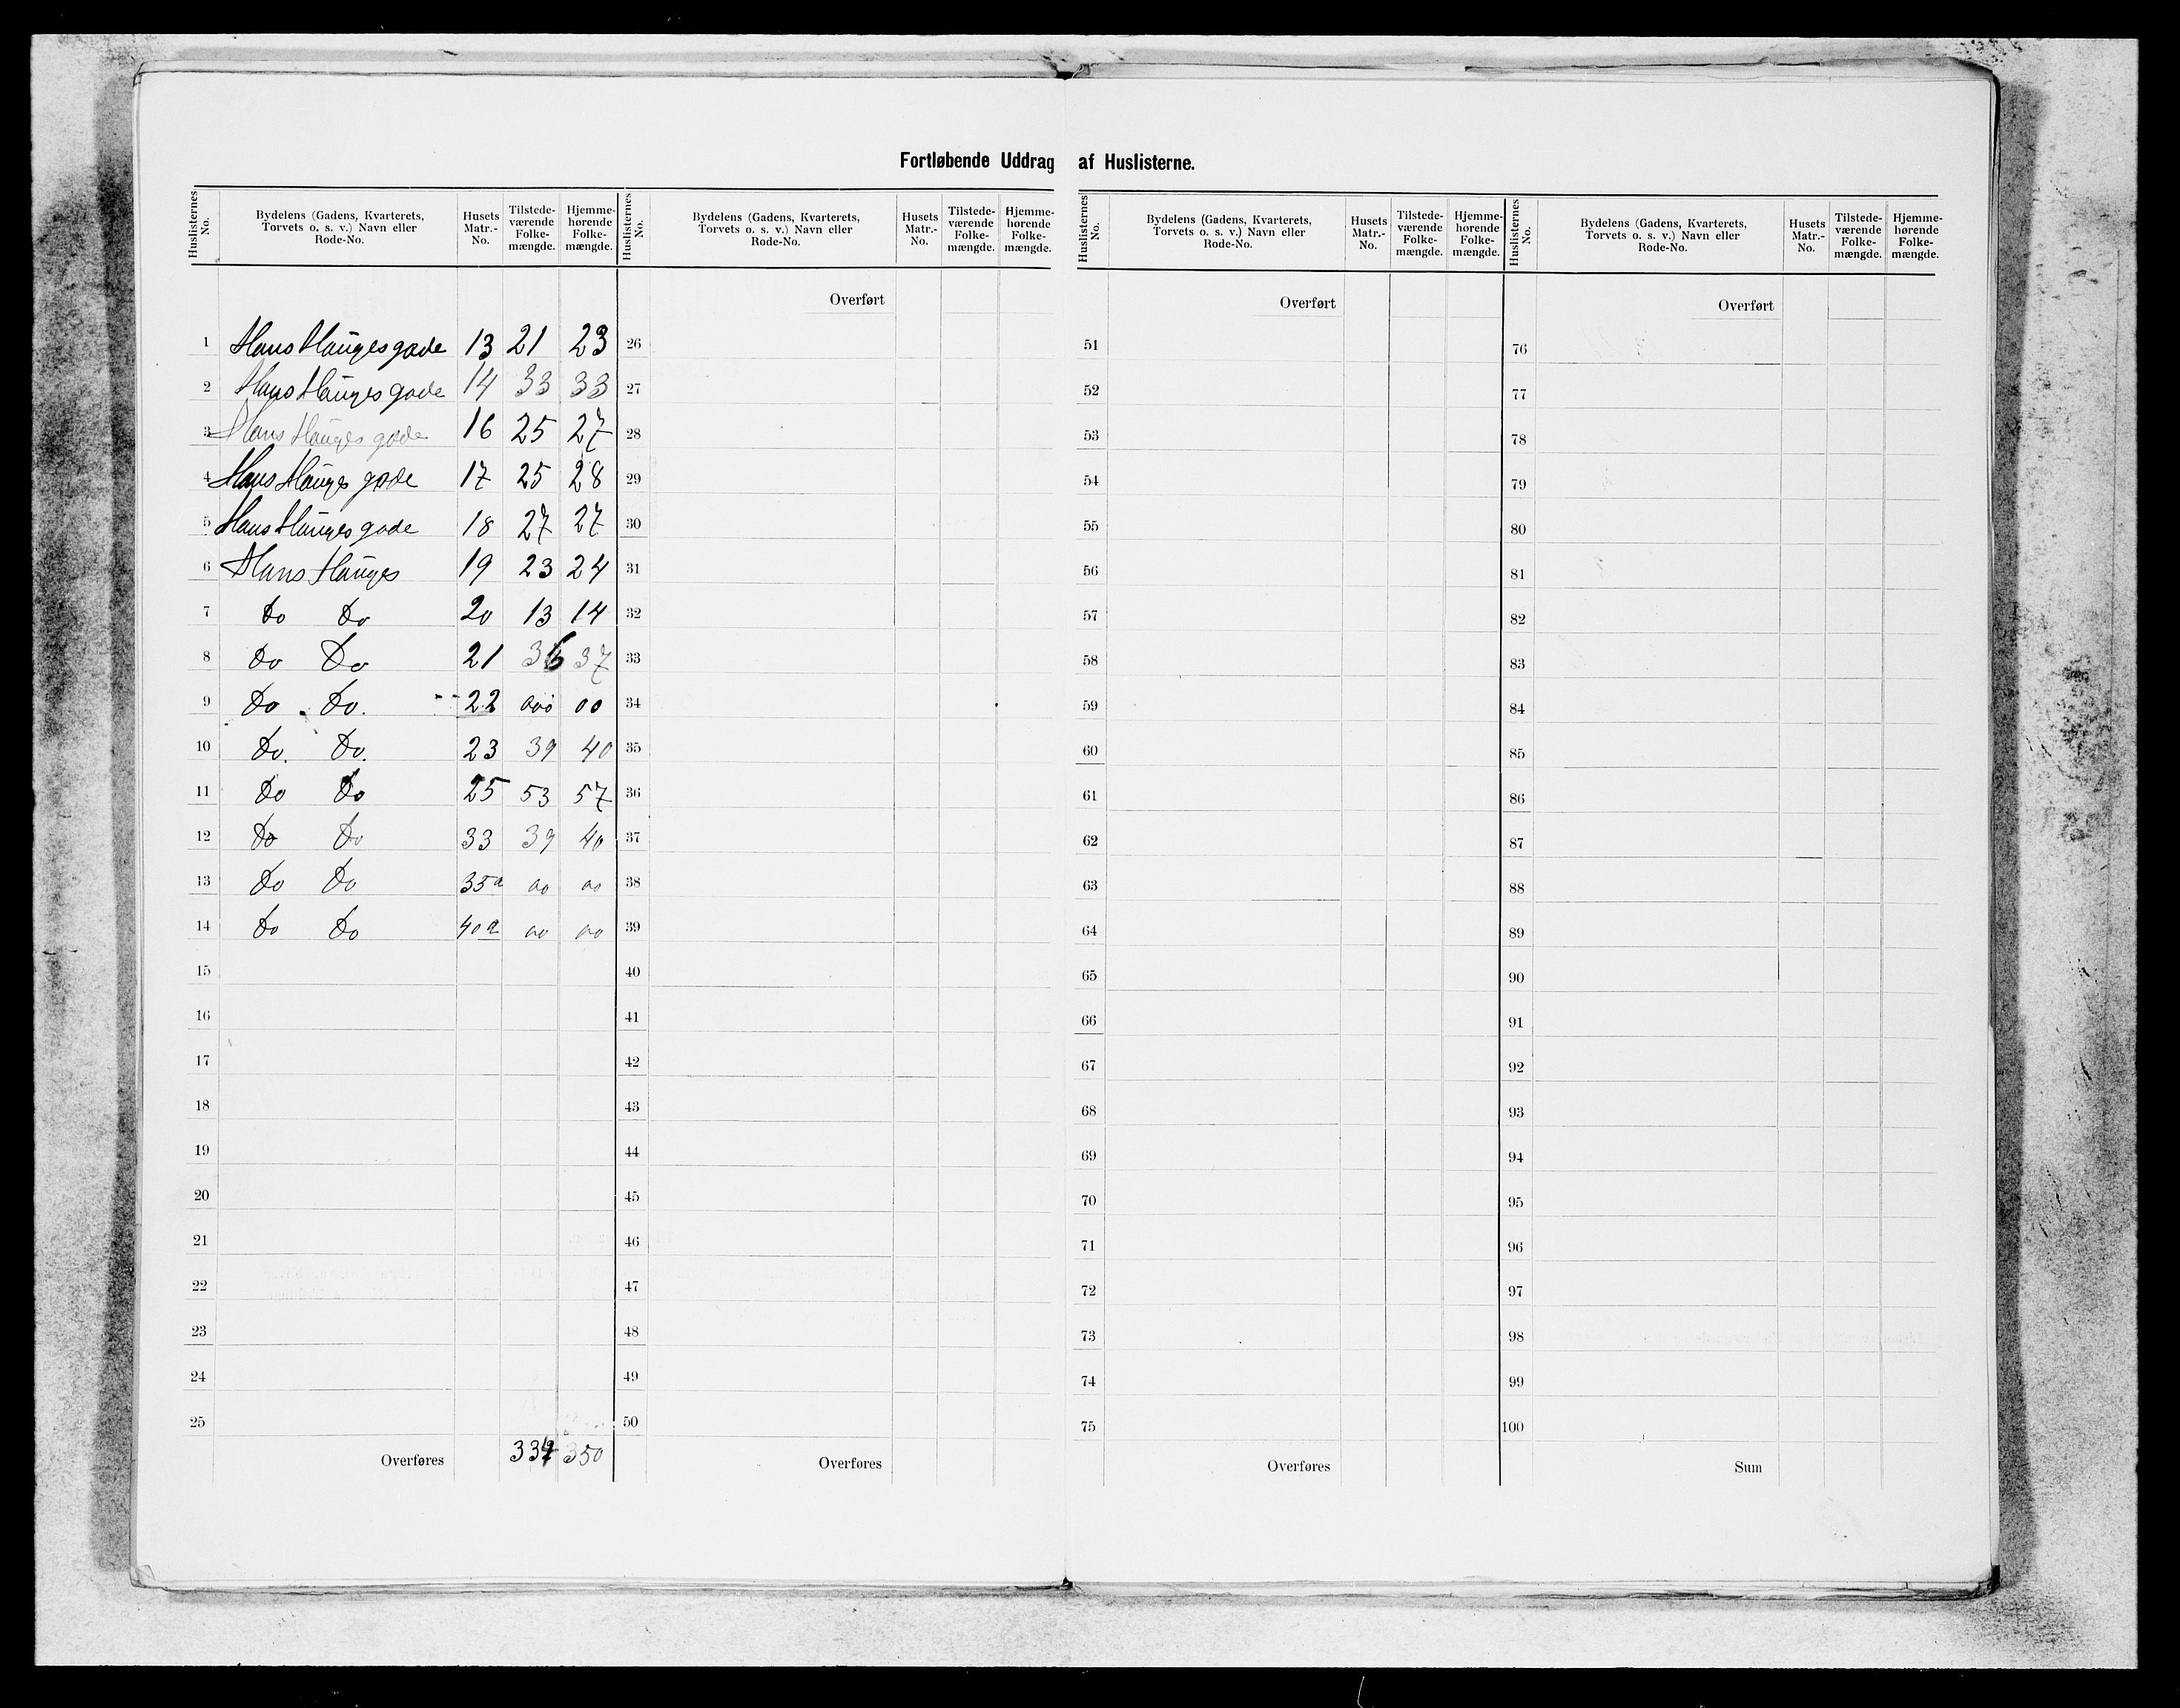 Fortløbende Uddrag af Huslisterne.
Huslisternes No. Bydelens (Gadens, Kvarterets, Torvets o. s. v.) Navn eller Rode-No. Husets Matr.-No. Tilstedeværende Folkemængde. Hjemmehørende Folkemængde.
1 Hans Haugesgade 13 21 23
2 Hans Haugesgade 14 33 33
3 Hans Hauges gade 16 25 27
4 Hans Hauges gade 17 25 28
5 Hans Hauges gade 18 27 27
6 Hans Hauges 19 23 24
7 Do Do 20 13 14
8 Do Do 21 36 37
9 Do Do. 22 000 00
10 Do. Do. 23 39 40
11 Do Do 25 53 57
12 Do Do 33 39 40
13 Do Do 35a 00 00
14 Do Do 40a 00 00
15
16
17
18
19
20
21
22
23
24
25
Overføres 334 350
Huslisternes No. Bydelens (Gadens, Kvarterets, Torvets o. s. v.) Navn eller Rode-No. Husets Matr.-No. Tilstedeværende Folkemængde. Hjemmehørende Folkemængde.
Overført
26
27
28
29
30
31
32
33
34
35
36
37
38
39
40
41
42
43
44
45
46
47
48
49
50
Overføres
Huslisternes No. Bydelens (Gadens, Kvarterets, Torvets o. s. v.) Navn eller Rode-No. Husets Matr.-No. Tilstedeværende Folkemængde. Hjemmehørende Folkemængde.
Overført
51
52
53
54
55
56
57
58
59
60
61
62
63
64
65
66
67
68
69
70
71
72
73
74
75
Overføres
Huslisternes No. Bydelens (Gadens, Kvarterets, Torvets o. s. v.) Navn eller Rode-No. Husets Matr.-No. Tilstedeværende Folkemængde. Hjemmehørende Folkemængde.
Overført
76
77
78
79
80
81
82
83
84
85
86
87
88
89
90
91
92
93
94
95
96
97
98
99
100
Sum